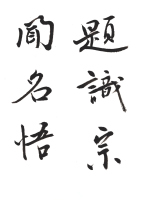 題識宗
聞名悟